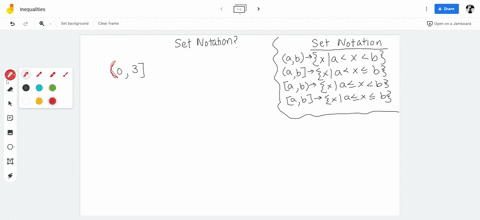 Inequalities
Share
Set background
Clear frame
Open on a Jamboard
Set Notation?
(0, 3]
Set Notation
(a,b)→{x|a<x<b}
(a,b]→{x|a<x≤b}
[a,b)→{x|a≤x<b}
[a,b]→{x|a≤x≤b}